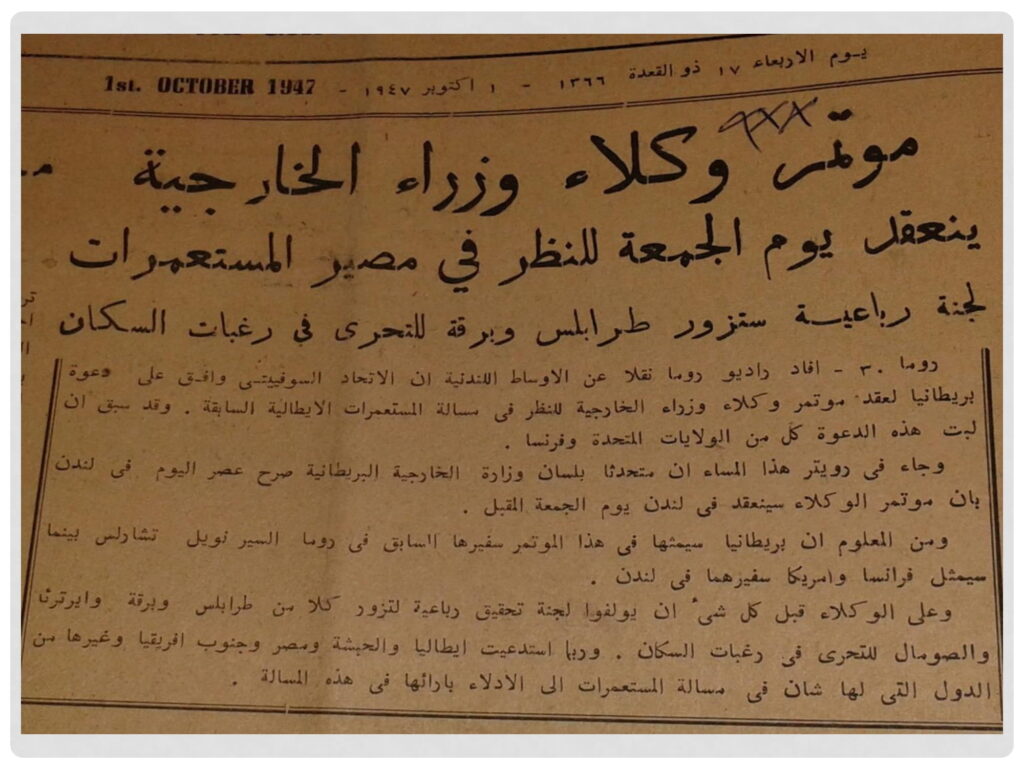 يوم الاربعاء ١٧ ذو القعدة ١٣٦٦ - ١ اكتوبر ١٩٤٧ - 1st. OCTOBER 1947
موتمر وكلاء وزراء الخارجية
ينعقد يوم الجمعة للنظر في مصير المستعمرات
لجنة رباعية ستزور طرابلس وبرقة للتحرى في رغبات السكان
روما ٣٠ - افاد راديو روما نقلا عن الاوساط اللندنية ان الاتحاد السوفييتى وافق على دعوة
بريطانيا لعقد موتمر وكلاء وزراء الخارجية للنظر فى مسالة المستعمرات الايطالية السابقة . وقد سبق ان
لبت هذه الدعوة كل من الولايات المتحدة وفرنسا .
وجاء فى رويتر هذا المساء ان متحدثا بلسان وزارة الخارجية البريطانية صرح عصر اليوم فى لندن
بان موتمر الوكلاء سينعقد فى لندن يوم الجمعة المقبل .
ومن المعلوم ان بريطانيا سيمثها فى هذا الموتمر سفيرها السابق فى روما السير نويل تشارلس بينما
سيمثل فرانسا وامريكا سفيرهما فى لندن .
وعلى الوكلاء قبل كل شىء ان يولفوا لجنة تحقيق رباعية لتزور كلا من طرابلس وبرقة وايرترنا
والصومال للتحرى فى رغبات السكان . وربما استدعيت ايطاليا والحبشة ومصر وجنوب افريقيا وغيرها من
الدول التى لها شان فى مسالة المستعمرات الى الادلاء بارائها فى هذه المسالة .